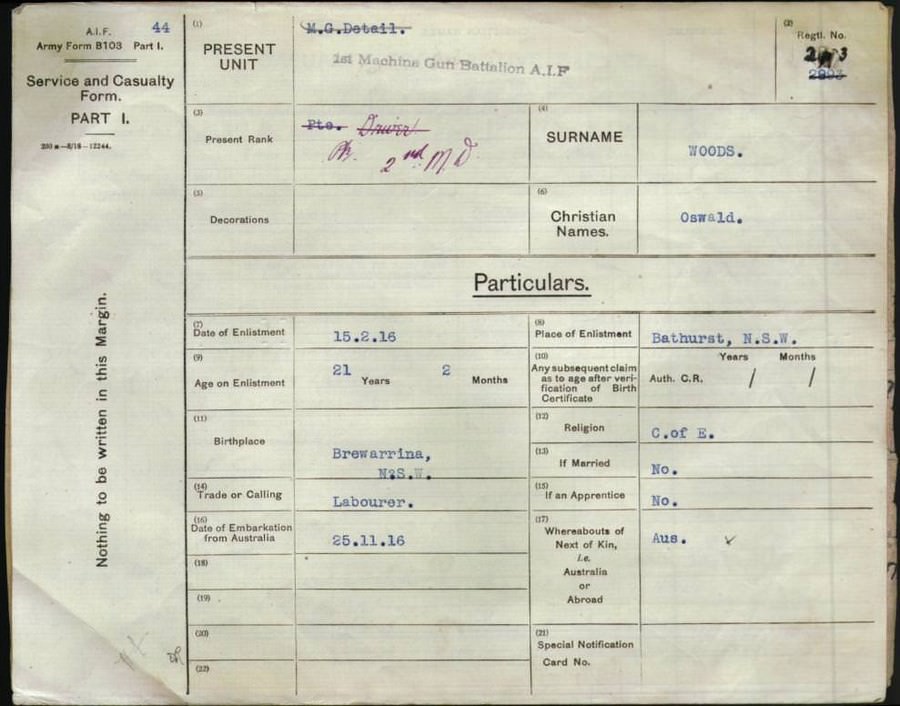 A.I.F. 44
Army Form B103 Part I.
Service and Casualty
Form.
PART I.
Nothing to be written in this Margin.
(1)
PRESENT
UNIT
M.G.Detail.
1st Machine Gun Battalion A.I.F
(2)
Regtl. No.
2893
(3)
Present Rank
Pte. Driver
2nd M.D.
(4)
SURNAME
WOODS.
(5)
Decorations
(6)
Christian
Names.
Oswald.
Particulars.
(7)
Date of Enlistment
15.2.16
(8)
Place of Enlistment
Bathurst, N.S.W.
(9)
Age on Enlistment
21 Years 2 Months
(10)
Any subsequent claim
as to age after veri-
fication of Birth
Certificate
Years Months
Auth. C.R. / /
(11)
Birthplace
Brewarrina,
N.S.W.
(12)
Religion
C.of E.
(13)
If Married
No.
(14)
Trade or Calling
Labourer.
(15)
If an Apprentice
No.
(16)
Date of Embarkation
from Australia
25.11.16
(17)
Whereabouts of
Next of Kin,
i.e.
Australia
or
Abroad
Aus.
(18)
(19)
(20)
(21)
Special Notification
Card No.
(22)